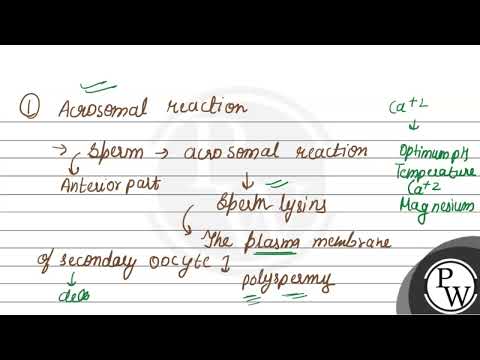 ① Acrosomal reaction
Ca+2
→ Sperm → acrosomal reaction
Anterior part
Optimum pH
Temperature
Ca+2
Magnesium
Sperm lysins
The plasma membrane
of secondary oocyte ]
polyspermy
PW
PW